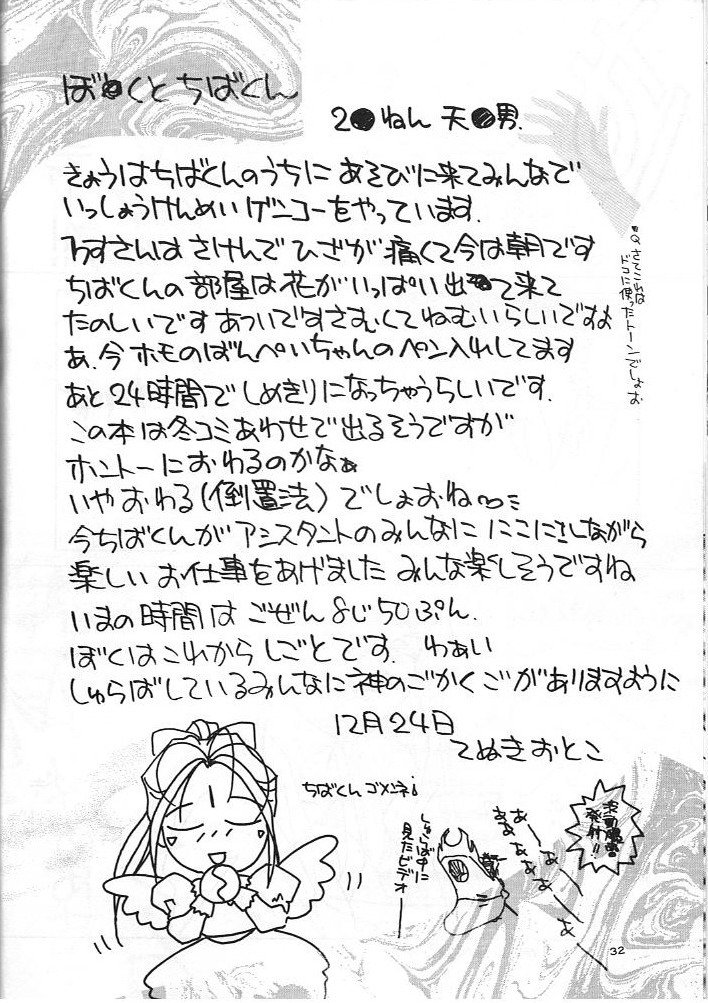 ぼ●くとちばくん
2●ねん 天●男.
きょうはちばくんのうちに あそびに来てみんなで
いっしょうけんめいゲンコーをやっています.
やすさんは さけんで ひざが 痛くて今は朝です
ちばくんの 部屋は 花が いっぱい出●て来て
たのしいです あついですさむくてねむいらしいですよ
あ.今 ホモのばんぺいちゃんの ペン入れしてます
あと24時間でしめきりになっちゃうらしいです.
この本は冬コミあわせで出るそうですが
ホントーにおわるのかなぁ
いやおわる(倒置法)でしょおね〜
今ちばくんが アシスタントのみんなに にこにこしながら
楽しい お仕事をあげました みんな楽しそうですね
いまの時間は ごぜん8じ50ぷん.
ぼくはこれから しごとです. わぁい
しゅらばしているみんなに神のごかくごがありますように
12月24日
てぬきおとこ
Q.さてこれは
ドコに使ったトーンでしょお
ちばくんゴメンネ!
しゅらば中に
見たビデオ
あーー
発射!!
32